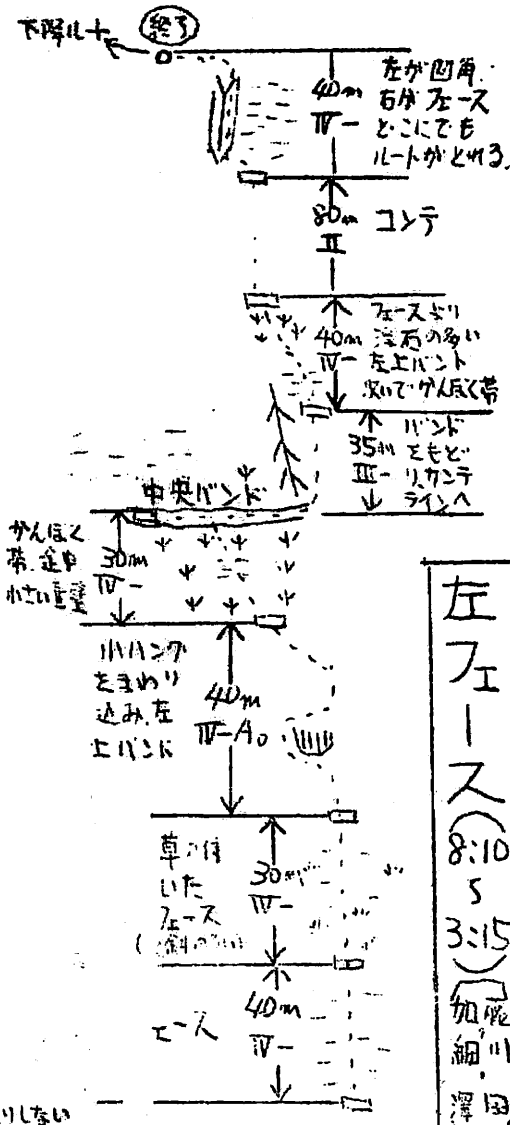 下降ルート
終了
40m
IV-
左が凹角.
右がフェース
どこにでも
ルートがとれる.
80m
II
コンテ
40m
IV-
フェースより
浮石の多い
左上バンド
次いでかんぼく帯
35m
III-
バンド
をもど
り、カンテ
ラインへ
中央バンド
かんぼく
帯、途中
小さい垂壁
30m
IV-
小ハング
をまわり
込み、左
上バンド
40m
IV-A0
草の住
いた
フェース
30m
IV-
40m
IV-
ェース
りしない
左フェース
8:10
3:15
細川
澤田